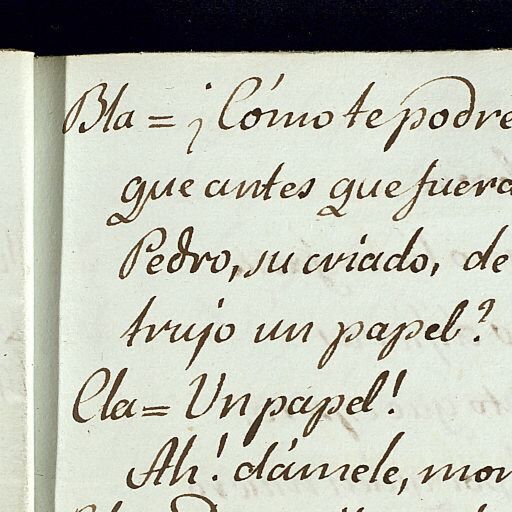 Bla = ¡Cómo te podré
que antes que fuera
Pedro, su criado, de
trujo un papel?
Cla = Un papel!
Ah! dámele,